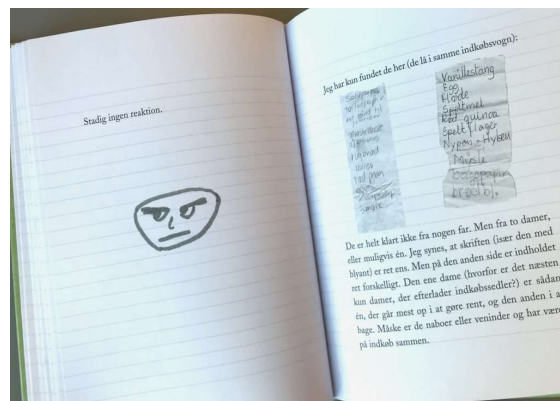 Stadig ingen reaktion.
Jeg har kun fundet de her (de lå i samme indkøbsvogn):
Vanillestang
Egg
Havde
Speltmel
Rød quinoa
Spelt flager
Nypon = Hyben
Müsli
bagepapir
De er helt klart ikke fra nogen far. Men fra to damer,
eller muligvis én. Jeg synes, at skriften (især den med
blyant) er ret ens. Men på den anden side er indholdet
ret forskelligt. Den ene dame (hvorfor er det næsten
kun damer, der efterlader indkøbssedler?) er sådan
én, der går mest op i at gøre rent, og den anden i at
bage. Måske er de naboer eller veninder og har været
på indkøb sammen.